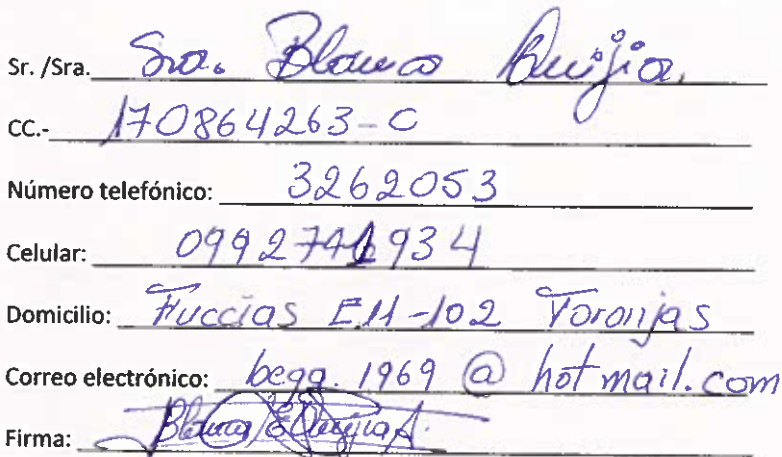 Sr. /Sra. Sra. Blanca Quijia.
CC.- 170864263-0
Número telefónico: 3262053
Celular: 0992741934
Domicilio: Fuccias E11-102 Toronjas
Correo electrónico: begq.1969 @ hotmail.com
Firma: Blanca E Quijia A.